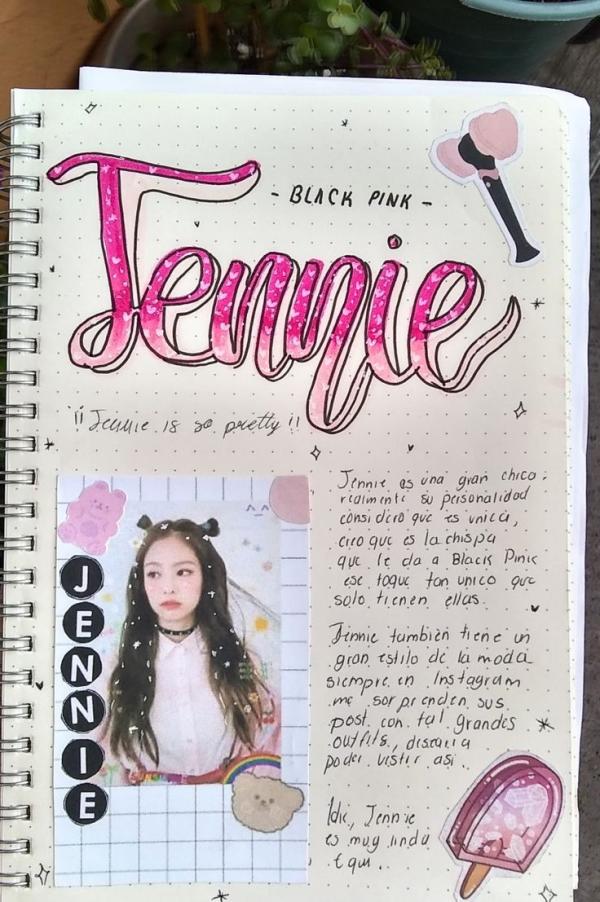 - BLACK PINK -
Jennie
¡¡Jennie is so pretty!!
JENNIE
^_^
Jennie es una gran chica:
realmente su personalidad
considero que es unica,
creo que es la chispa
que le da a Black Pink
ese toque tan unico que
solo tienen ellas.
Jennie también tiene un
gran estilo de la moda
siempre en Instagram
me sorprenden sus
post con tal grandes
outfits, desearia
poder vestir asi.
Idk, Jennie
es muy linda